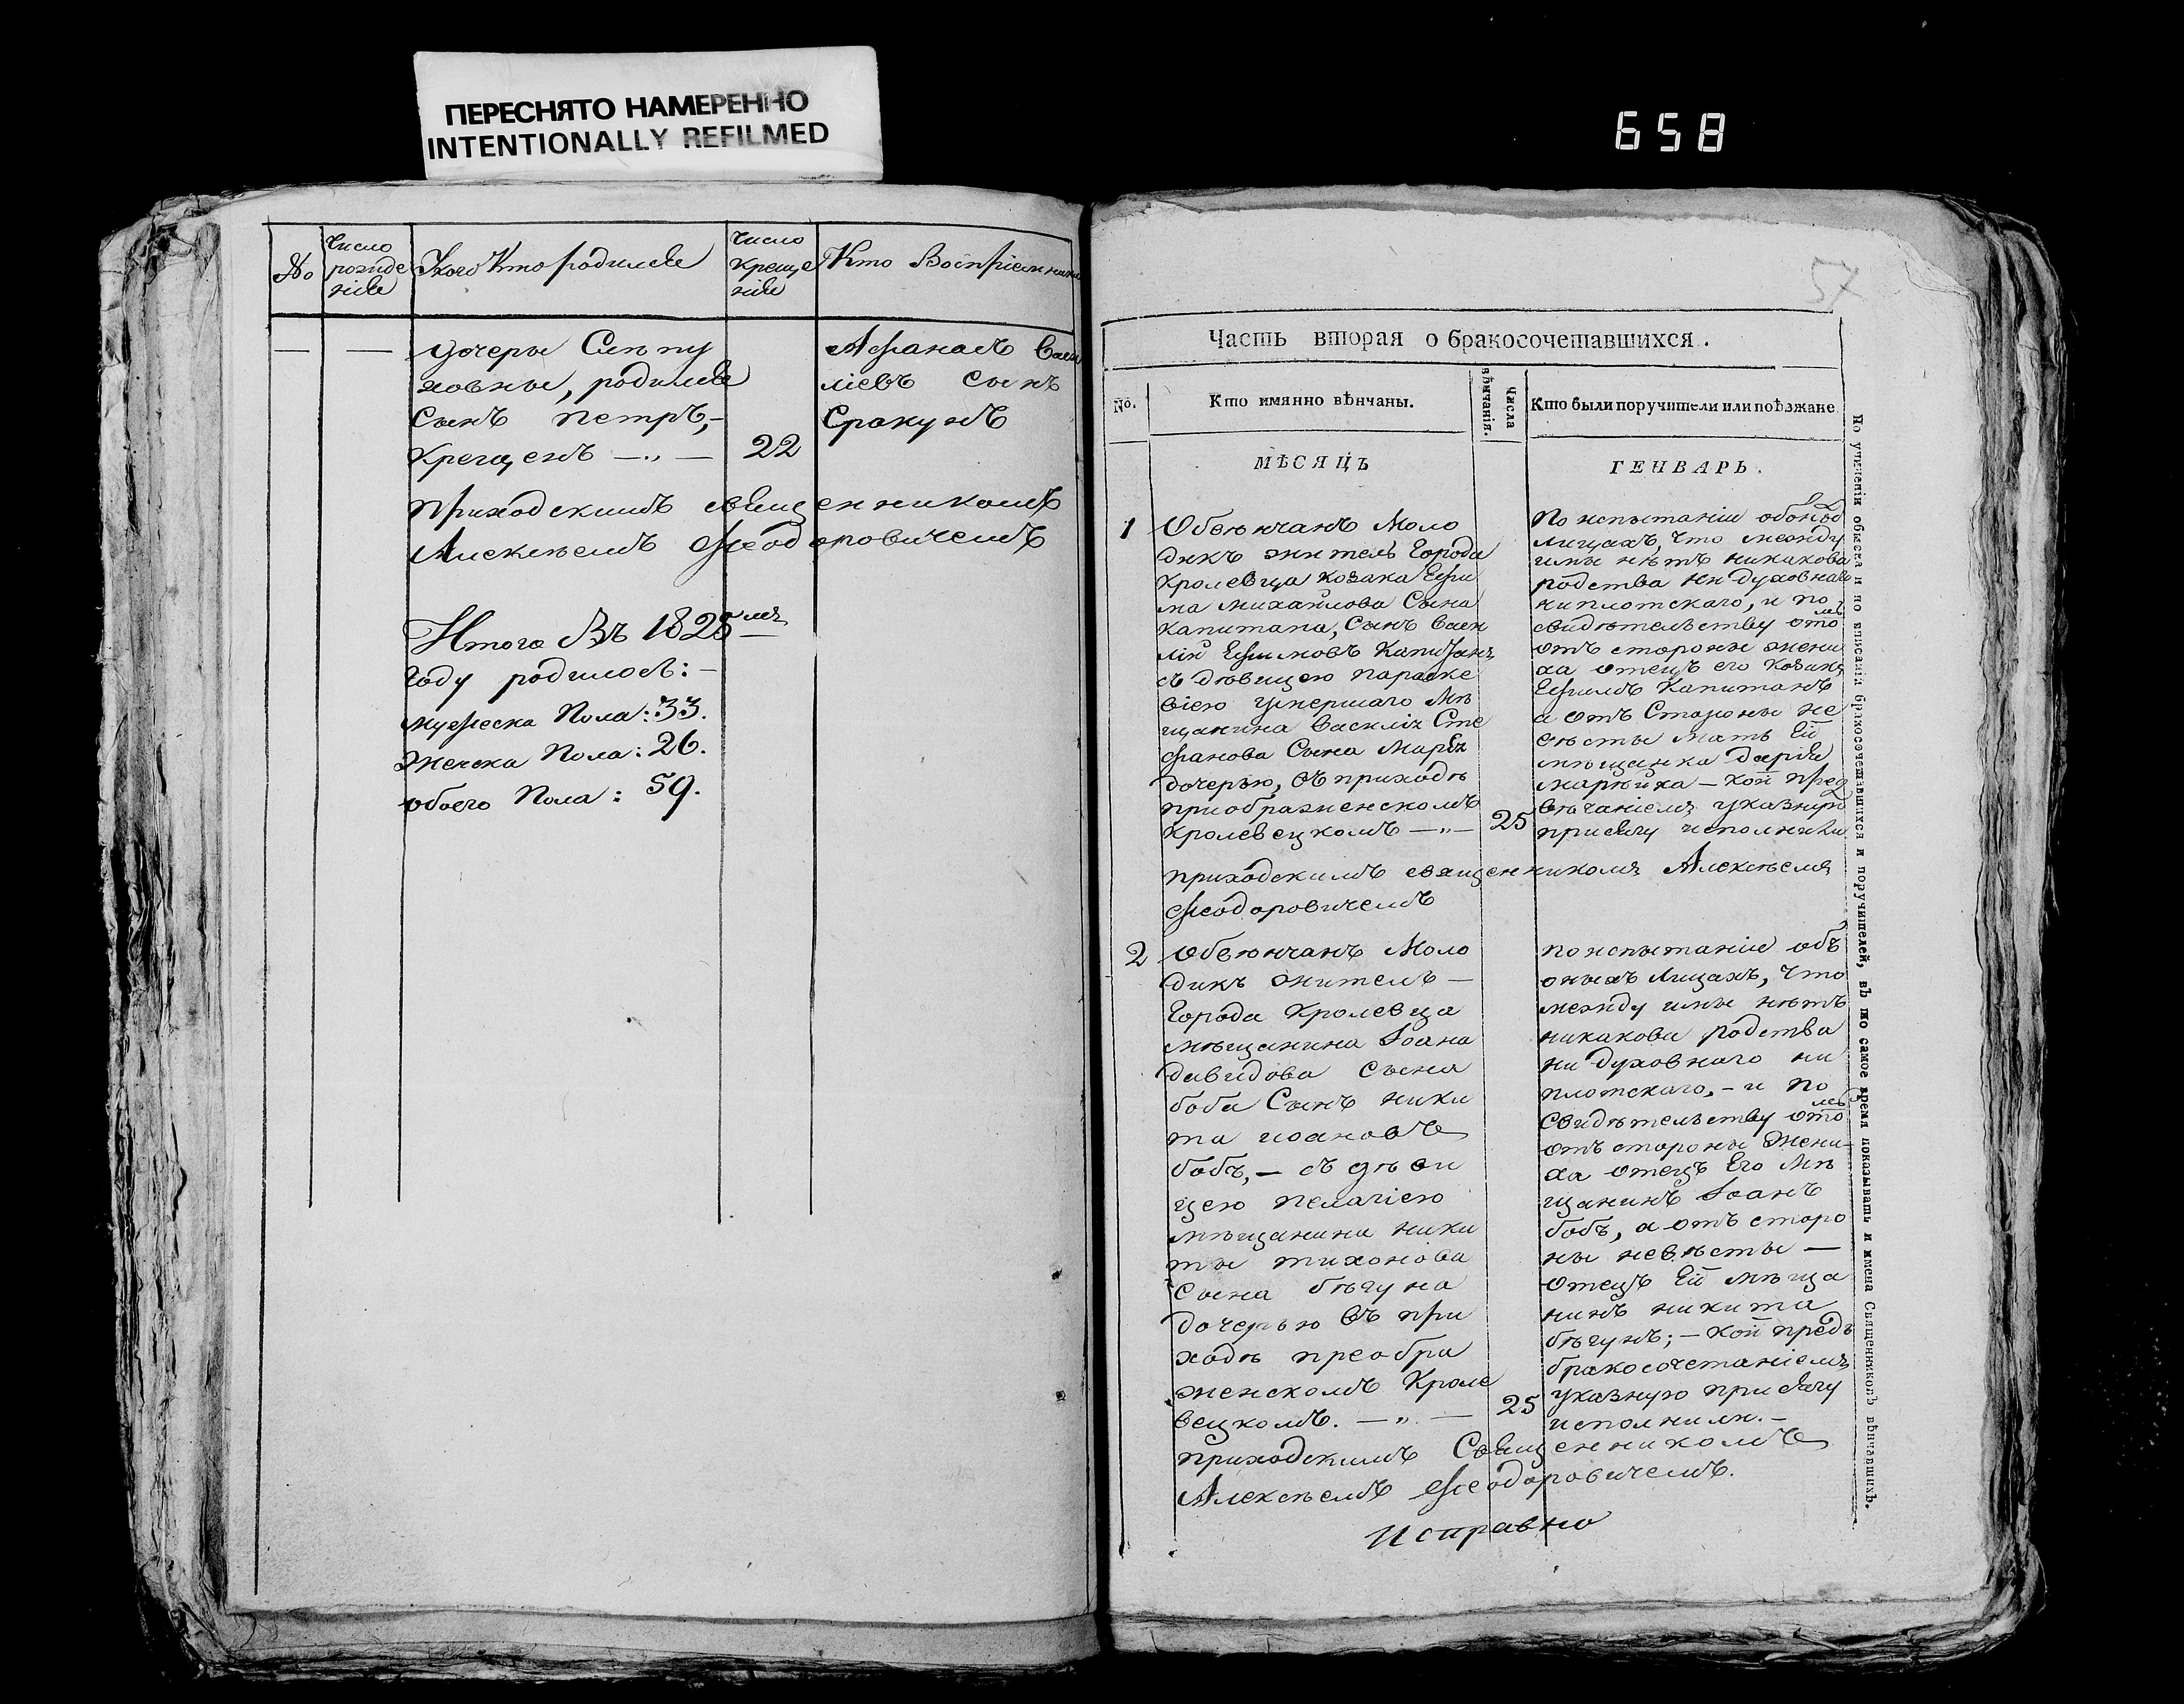 ПЕРЕСНЯТО НАМЕРЕННО
INTENTIONALLY REFILMED
658
№
Число рожденія
У кого кто родился
Число крещенія
Кто воспріемники
дочеры
ховны, родился
сынъ Петръ,-
Крещенъ —„— 22
Афанасъ Васи
ліевъ сынъ
Сракунъ
приходскимъ священникомъ
Алексѣемъ Ѳеодоровичемъ
Итого Въ 1825мъ
Году родилось:-
мужеска Пола: 33.
Женска Пола: 26.
обоего Пола: 59.
57
Часть вторая о бракосочетавшихся.
№.
Кто имянно вѣнчаны.
Числа вѣнчанія.
Кто были поручители или поѣзжане
МѢСЯЦЪ
ГЕНВАРЬ.
1
Обвѣнчанъ Моло
дикъ житель Города
Кролевца козака Ефи
ма Михайлова Сына
Капитана, Сынъ Васи
лій Ефимовъ Капитанъ
съ дѣвицею Параске
віею умершаго Мѣ
щанина Василія Сте
фанова Сына
дочерью, въ приходѣ
приображенскомъ
Кролевецкомъ —„— 25
По испытаніи
лицахъ, что между
имы нѣтъ никакова
родства ни духовнаго
ни плотскаго, и по
свидѣтельству
отъ стороны жени
ха отецъ его козакъ
Ефимъ Капитанъ
а отъ Стороны не
вѣсты мать Ей
мѣщанка Дарія
— кои пред
вѣнчаніемъ указную
присягу исполнили
приходскимъ священникомъ Алексѣемъ
Ѳеодоровичемъ
2
Обвѣнчанъ Моло
дикъ житель —
Города Кролевца
мѣщанина Іоана
Давидова Сына
боба Сынъ Ники
та Иоановъ
бобъ,— съ дѣви
цею Пелагіею
мѣщанина Ники
ты Тихонова
Сына бѣгуна
дочерью въ при
ходѣ преобра
женскомъ Кроле
вецкомъ. —„— 25
по испытаніи объ
оныхъ лицахъ, что
между имы нѣтъ
никакова родства
ни духовнаго ни
плотскаго,- и по
свидѣтельству
отъ стороны жени-
ха отецъ Его мѣ
щанинъ Іоанъ
бобъ, а отъ сторо
ны невѣсты —
отецъ Ей мѣща
нинъ Никита
бѣгунъ;- кои предъ
бракосочетаніемъ
указную присягу
исполнили.-
приходскимъ Священникомъ
Алексѣемъ Ѳеодоровичемъ.
Исправно
По учиненіи обыска и по вписаніи бракосочетавшихся и поручителей, въ то самое время показывать и имена Священниковъ вѣнчавшихъ.